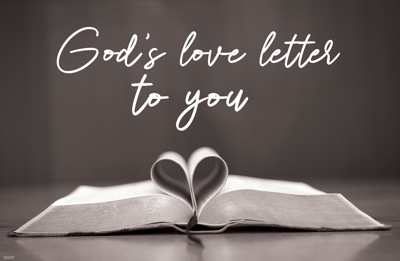 God's love letter
to you